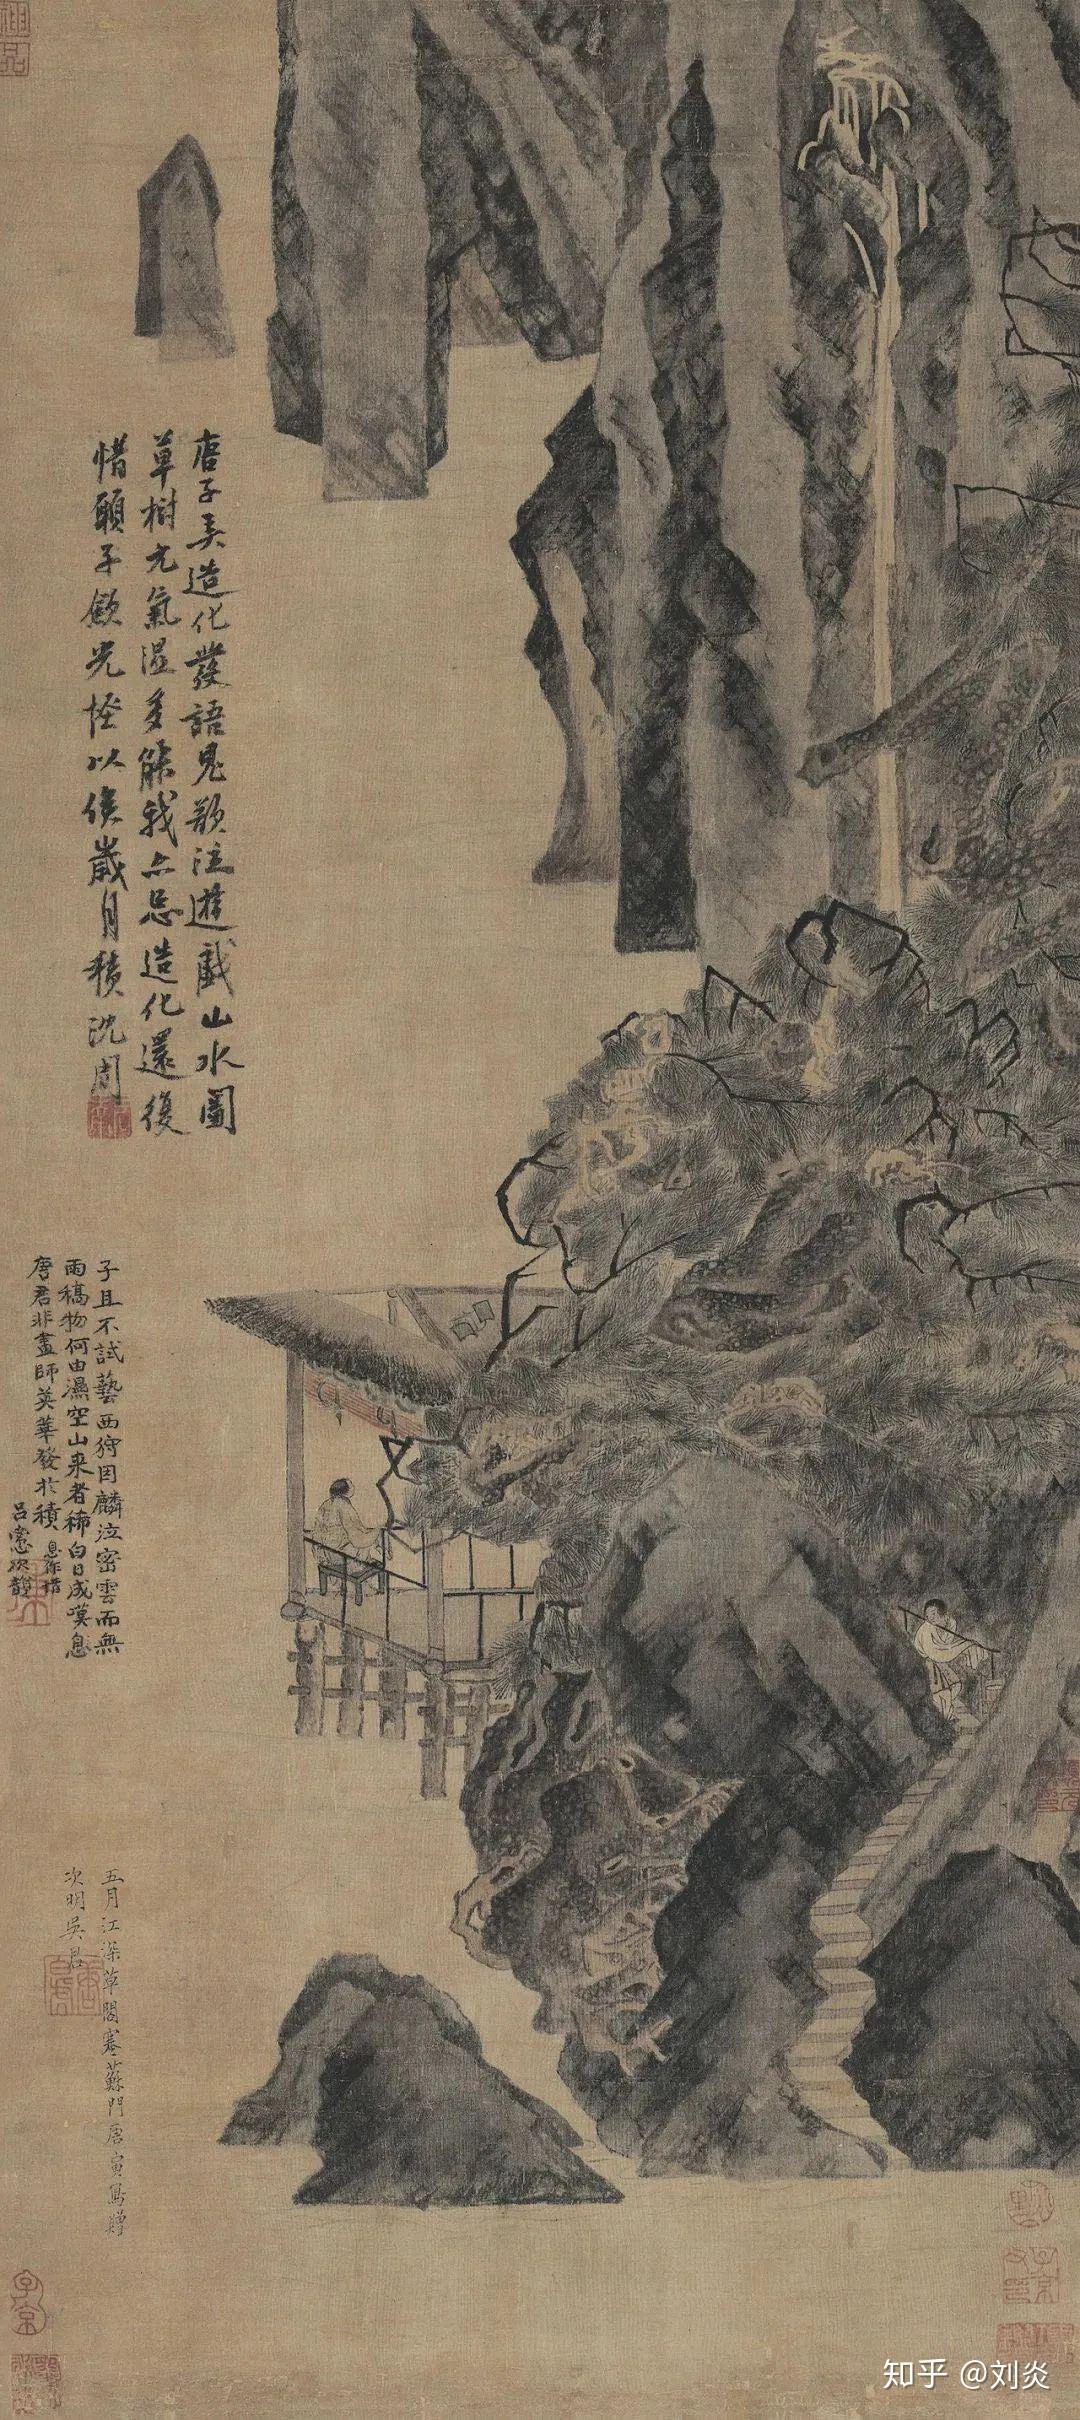 唐子弄造化發語鬼歌泣遊戲山水圖
草樹元氣濕多能我亦忌造化還復
惜願子斂光怪以俟歲月積沈周
子且不試藝西狩因麟泣密雲而無
雨稿物何由濕空山来者稀白日成嘆息
唐君非畫師英華發於積
吕㦂次韻
五月江深草閣寒蘇門唐寅寫贈
次明吳君
神品
子京
知乎 @刘炎